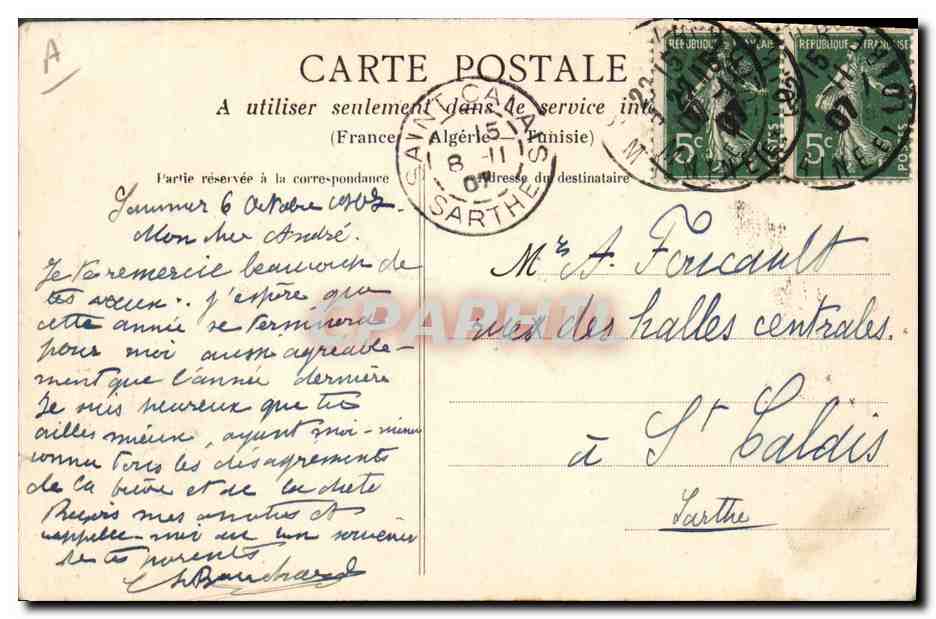 A
CARTE POSTALE
A utiliser seulement dans le service
(France Algérie Tunisie)
Partie réservée à la correspondance
Adresse du destinataire
REPUBLIQUE FRANÇAISE
5c
POSTES
REPUBLIQUE FRANÇAISE
5c
POSTES
SAINT-CALAIS
15
8 -11
07
SARTHE
6 Octobre
Mon cher André.
Je te remercie beaucoup de
tes vœux. j'espère que
cette année se terminera
pour moi aussi agréable-
ment que l'année dernière
Je suis heureux que tu
ailles mieux, ayant moi-même
connu tous les désagréments
de la fièvre et de la diète
Reçois mes amitiés et
rappelle-moi au bon souvenir
de tes parents
Mr A. Foucault
rue des halles centrales.
à St Calais
Sarthe
CPAPHIL